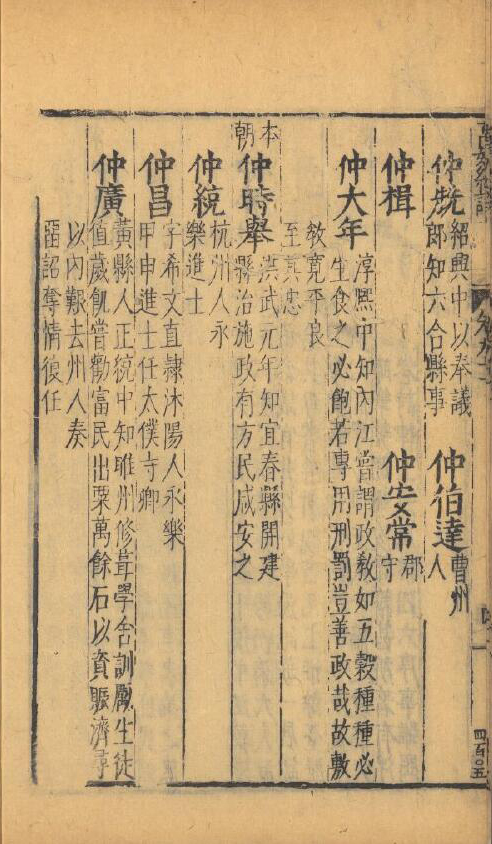 仲
紹興中以奉議
郎知六合縣事
仲伯達
曹州
人
仲楫
仲安常
郡
守
仲大年
淳熙中知內江嘗謂政教如五穀種種必
生食之必飽若專用刑罰豈善政哉故敷
教寬平良
至其忠
本
朝
仲時舉
洪武元年知宜春縣開建
縣治施政有方民咸安之
仲統
杭州人永
樂進士
仲昌
字希文直隸沐陽人永樂
甲申進士仕太僕寺卿
仲廣
黃縣人正統中知睢州修葺學舍訓勵生徒
值歲飢嘗勸富民出粟萬餘石以資賑濟尋
以內艱去州人奏
留詔奪情復任
四百〇五